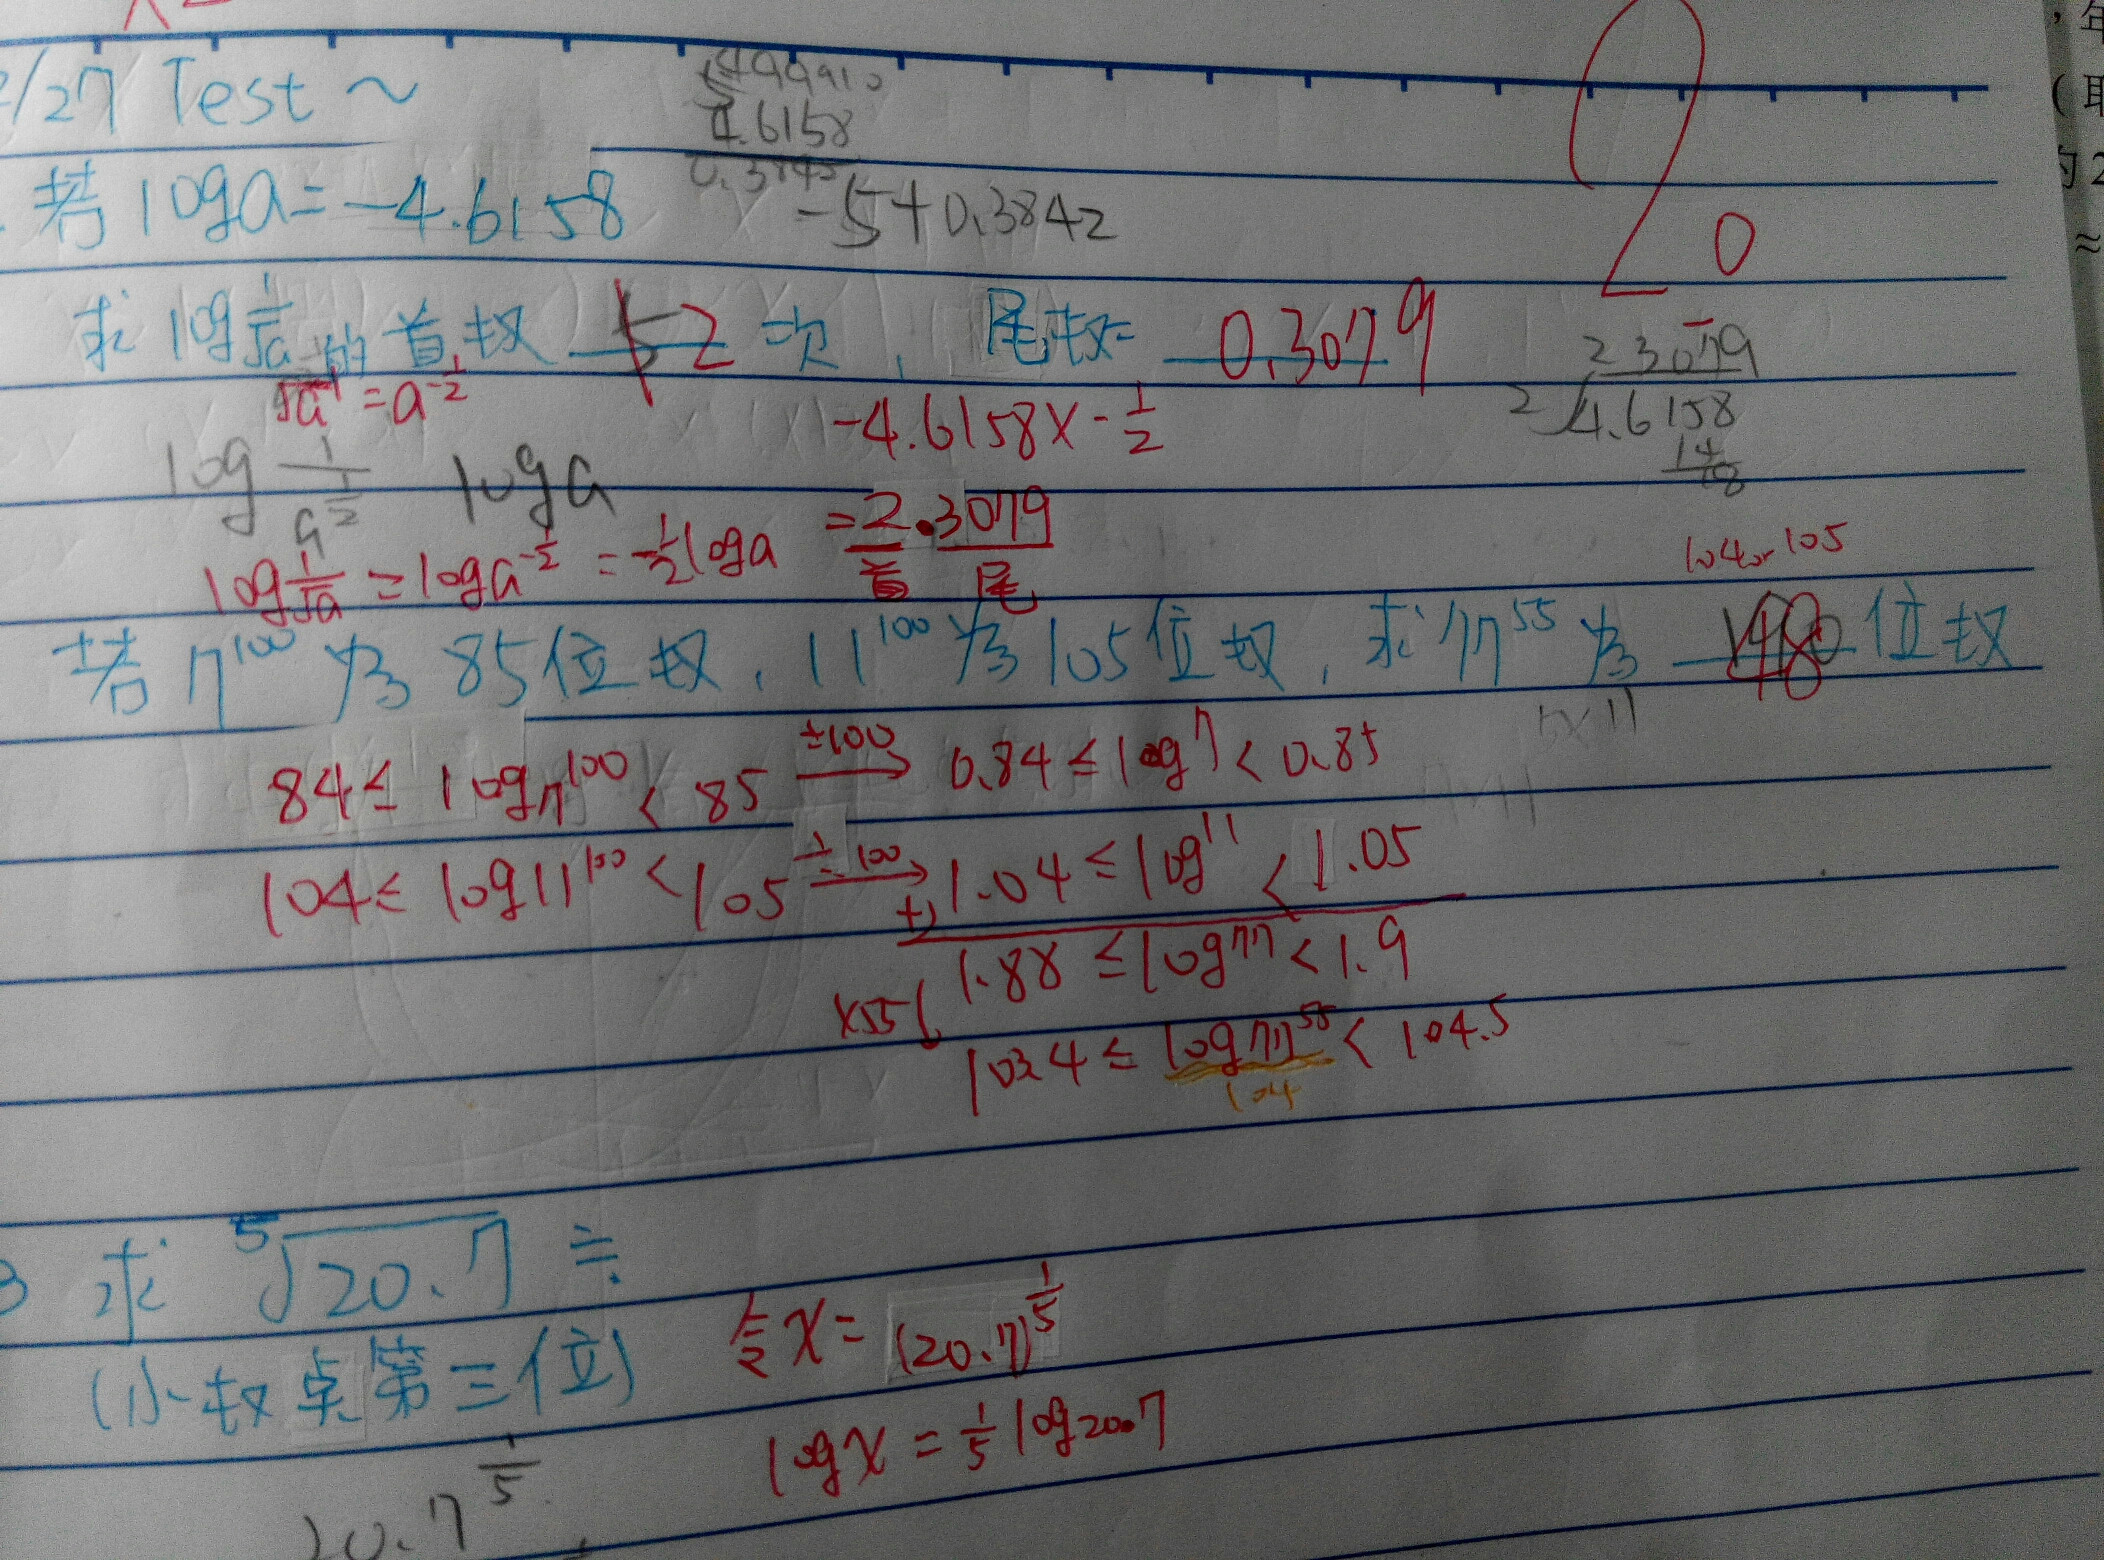 2/27 Test ~
499910
4.6158
若 loga = -4.6158
-5+0.3842
0
求 log 1/√a 的首数 2 次, 尾数= 0.3079
2.3079
2√4.6158
14
18
√a⁻¹ = a^-1/2
-4.6158 x -1/2
log 1/a^1/2 loga
log 1/√a = log a^-1/2 = -1/2 loga = 2.3079
首 尾
104or 105
若 7^100 为 85位数, 11^100 为 105位数, 求 77^55 为 位数
7x11
84 ≤ log7^100 < 85 ÷100→ 0.84 ≤ log7 < 0.85
104 ≤ log11^100 < 105 ÷100→ 1.04 ≤ log11 < 1.05
+) 1.88 ≤ log77 < 1.9
x55↓ 103.4 ≤ log77^55 < 104.5
104
3 求 ⁵√20.7 ≒
(小数点第三位)
x = (20.7)^1/5
logx = 1/5 log20.7
20.7^1/5
年
(取
≈